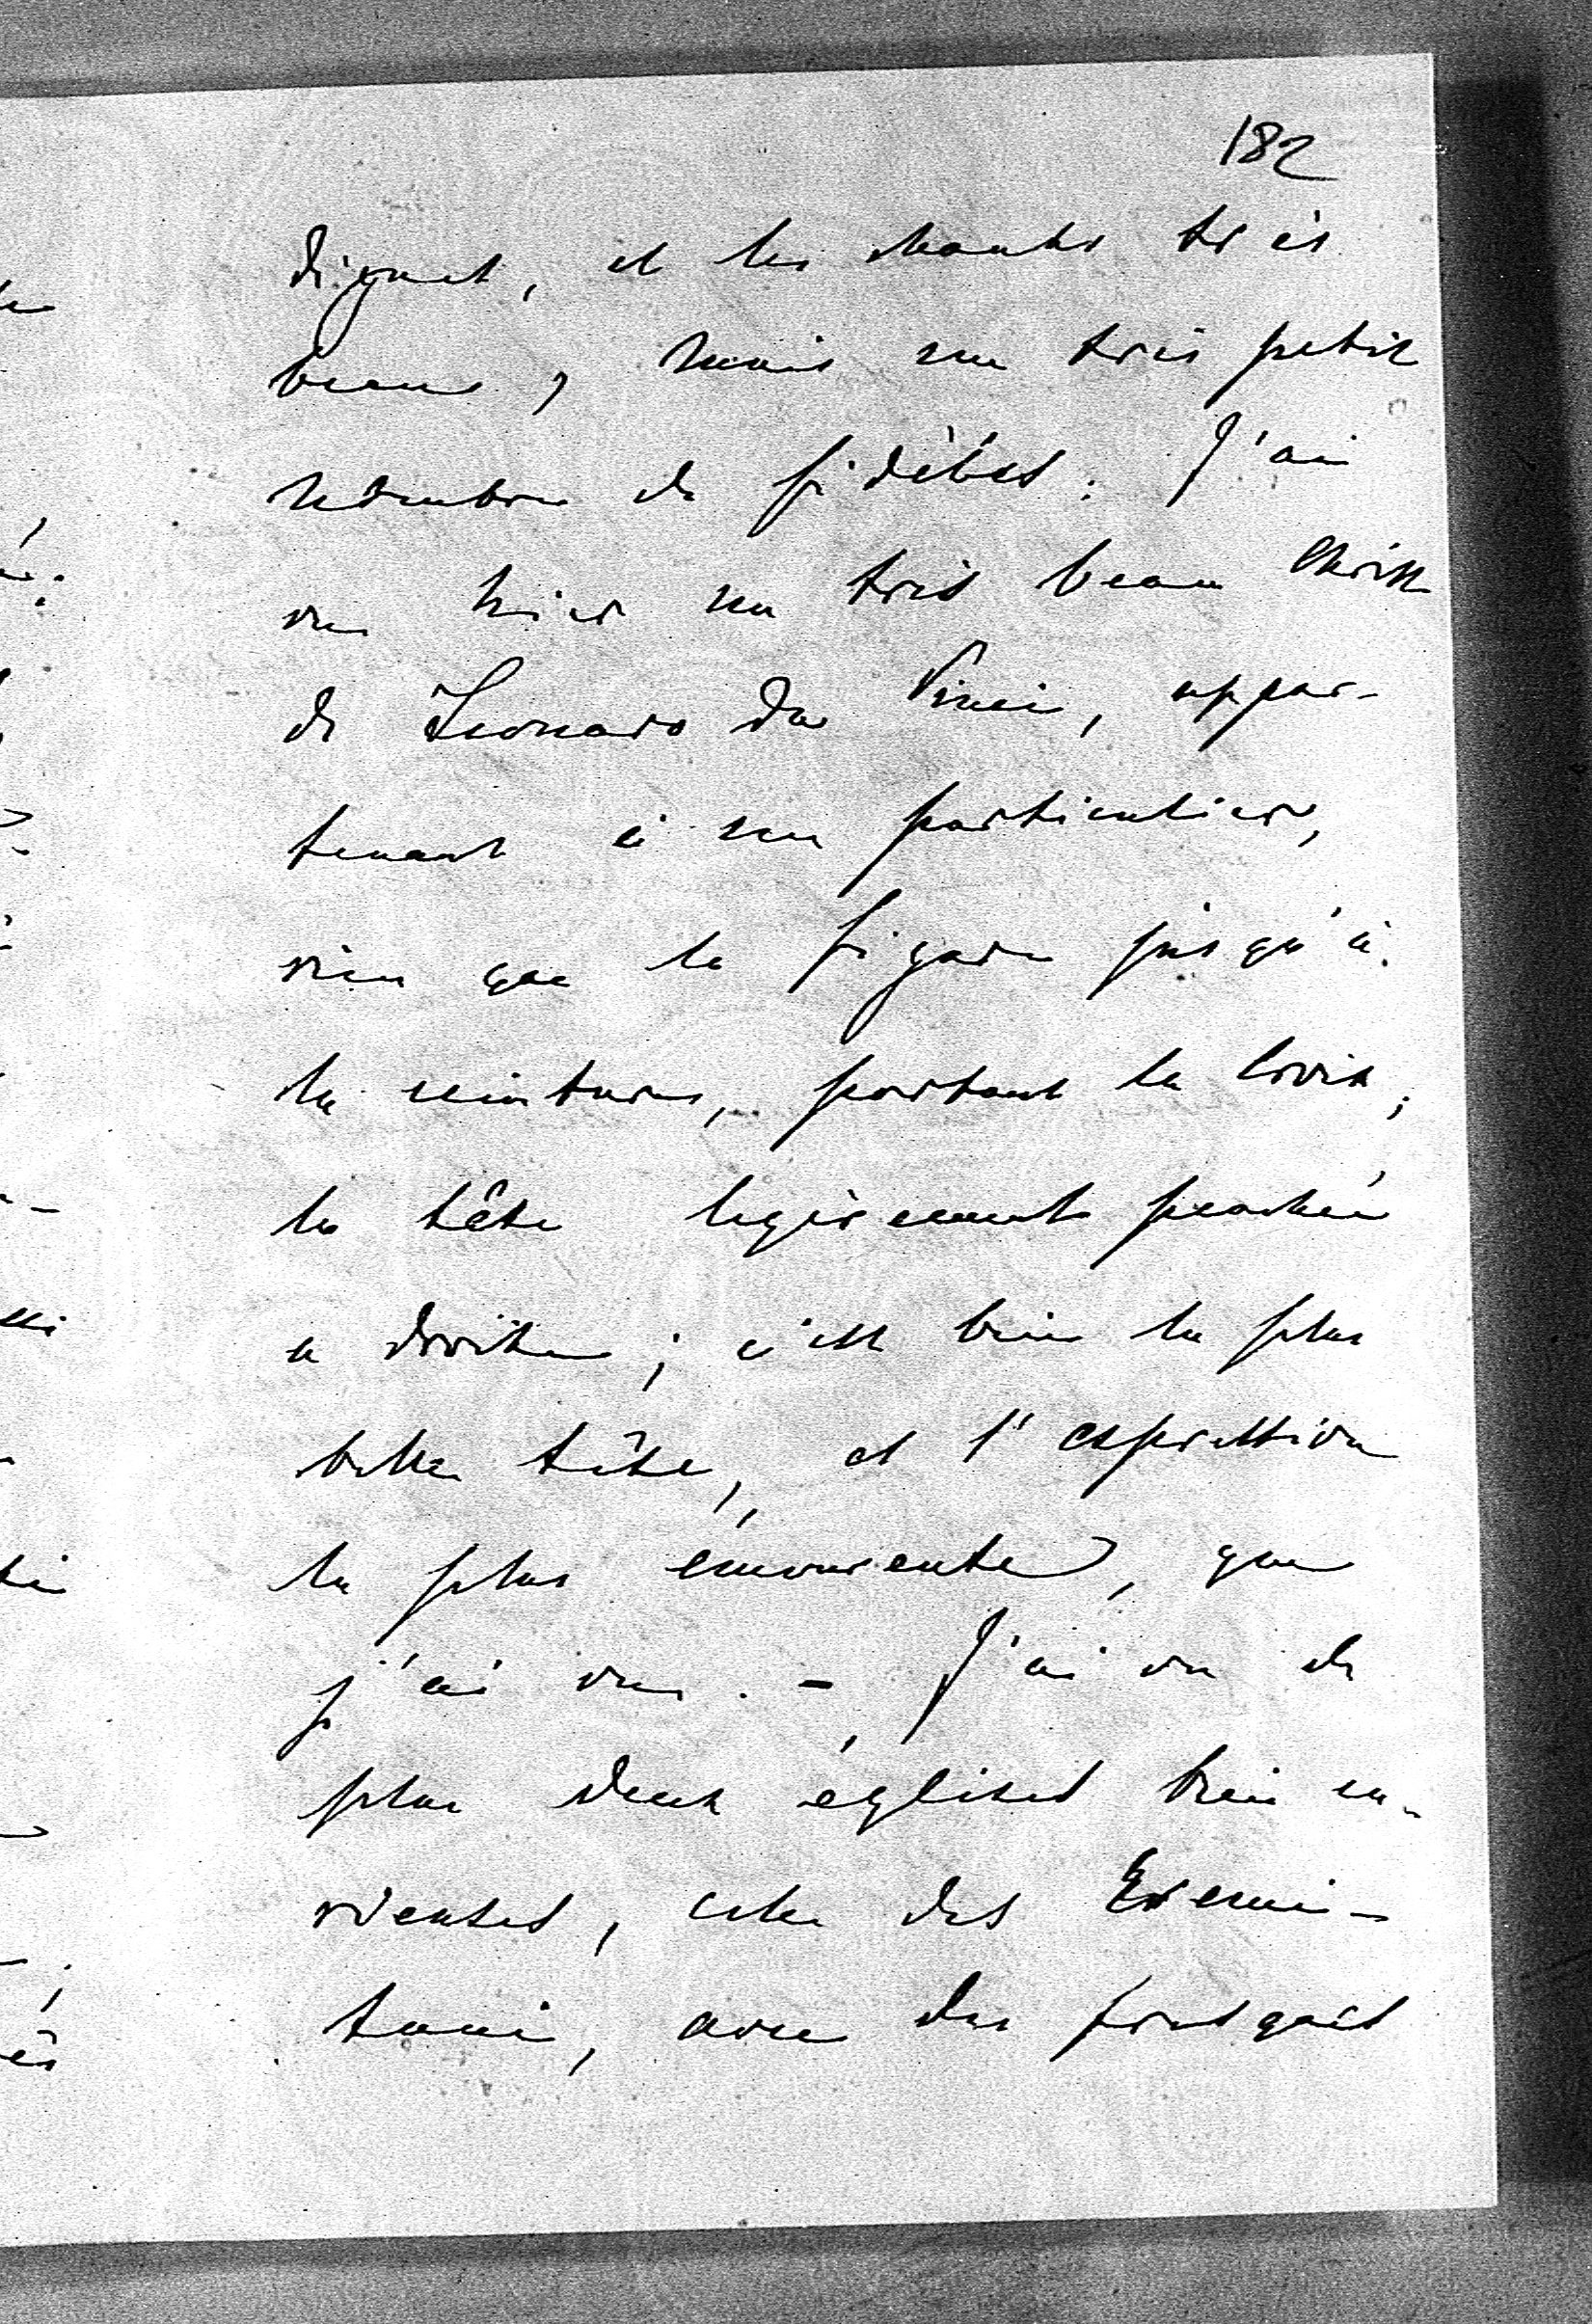 182
dignes, et les chants très
beaux, mais un très petit
nombre de fidèles. J'ai
vu hier un très beau Christ
de Leonard da Vinci, appar-
tenant à un particulier,
rien que la figure jusqu'à
la ceinture, portant la Croix;
la tête legèrement penchée
a droite; c'est bien la plus
belle tête, et l'expression
la plus émouvante, que
j'ai vue. - J'ai vu de
plus deux églises bien cu-
rieuses, celle des Eremi-
tani, avec des fresques